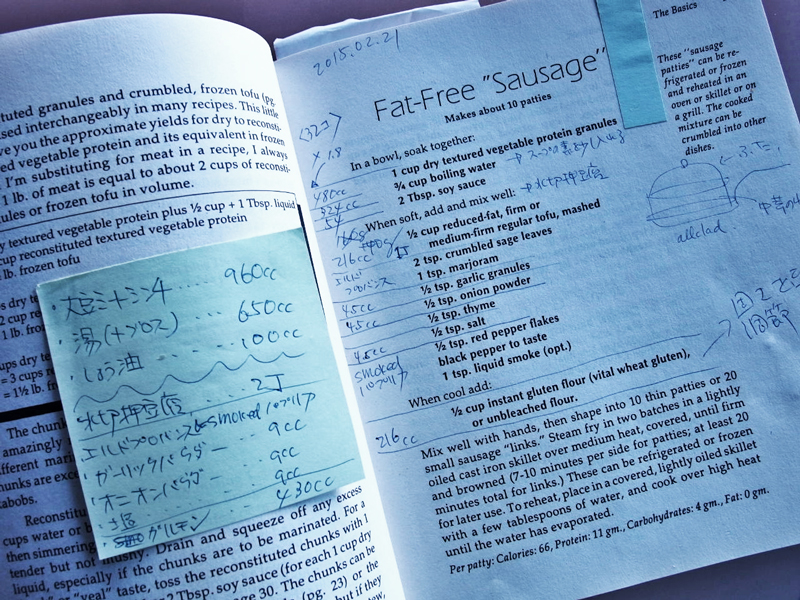 tuted granules and crumbled, frozen tofu (pg.
sed interchangeably in many recipes. This little
ve you the approximate yields for dry to reconsti-
ed vegetable protein and its equivalent in frozen
I'm substituting for meat in a recipe, I always
1 lb. of meat is equal to about 2 cups of reconsti-
ules or frozen tofu in volume.
y textured vegetable protein plus ½ cup + 1 Tbsp. liquid
cup reconstituted textured vegetable protein
lb. frozen tofu
・大豆ミートミンチ .... 960cc
・湯(+ブロス) ... 650cc
・しょう油 ... 100cc
・木綿押豆腐 ... 2丁
・エルドプロバンス smokedパプリカ
・ガーリックパウダー ... 9cc
・オニオンパウダー ... 9cc
・塩 9cc
・グルテン 430cc
The chunk
amazingly
fferent mar
hunks are exc
kabobs.
Reconstitu
cups water or b
then simmering
tender but not mushy. Drain and squeeze off any excess
liquid, especially if the chunks are to be marinated. For a
" or "veal" taste, toss the reconstituted chunks with 1
2 Tbsp. soy sauce (for each 1 cup dry
page 30. The chunks can
(pg. 23) or the
but if they
2015.02.21
The Basics
Fat-Free "Sausage"
Makes about 10 patties
These "sausage
patties" can be re-
frigerated or frozen
and reheated in an
oven or skillet or on
a grill. The cooked
mixture can be
crumbled into other
dishes.
In a bowl, soak together:
1 cup dry textured vegetable protein granules
¾ cup boiling water
2 Tbsp. soy sauce
When soft, add and mix well:
½ cup reduced-fat, firm or
medium-firm regular tofu, mashed
2 tsp. crumbled sage leaves
1 tsp. marjoram
½ tsp. garlic granules
½ tsp. onion powder
½ tsp. thyme
½ tsp. salt
½ tsp. red pepper flakes
black pepper to taste
1 tsp. liquid smoke (opt.)
When cool add:
½ cup instant gluten flour (vital wheat gluten),
or unbleached flour.
× 1.8
480cc
324cc
54
216cc
45cc
45cc
45cc
smoked
パプリカ
216cc
allclad
Mix well with hands, then shape into 10 thin patties or 20
small sausage "links." Steam fry in two batches in a lightly
oiled cast iron skillet over medium heat, covered, until firm
and browned (7-10 minutes per side for patties; at least 20
minutes total for links.) These can be refrigerated or frozen
for later use. To reheat, place in a covered, lightly oiled skillet
with a few tablespoons of water, and cook over high heat
until the water has evaporated.
Per patty: Calories: 66, Protein: 11 gm., Carbohydrates: 4 gm., Fat: 0 gm.